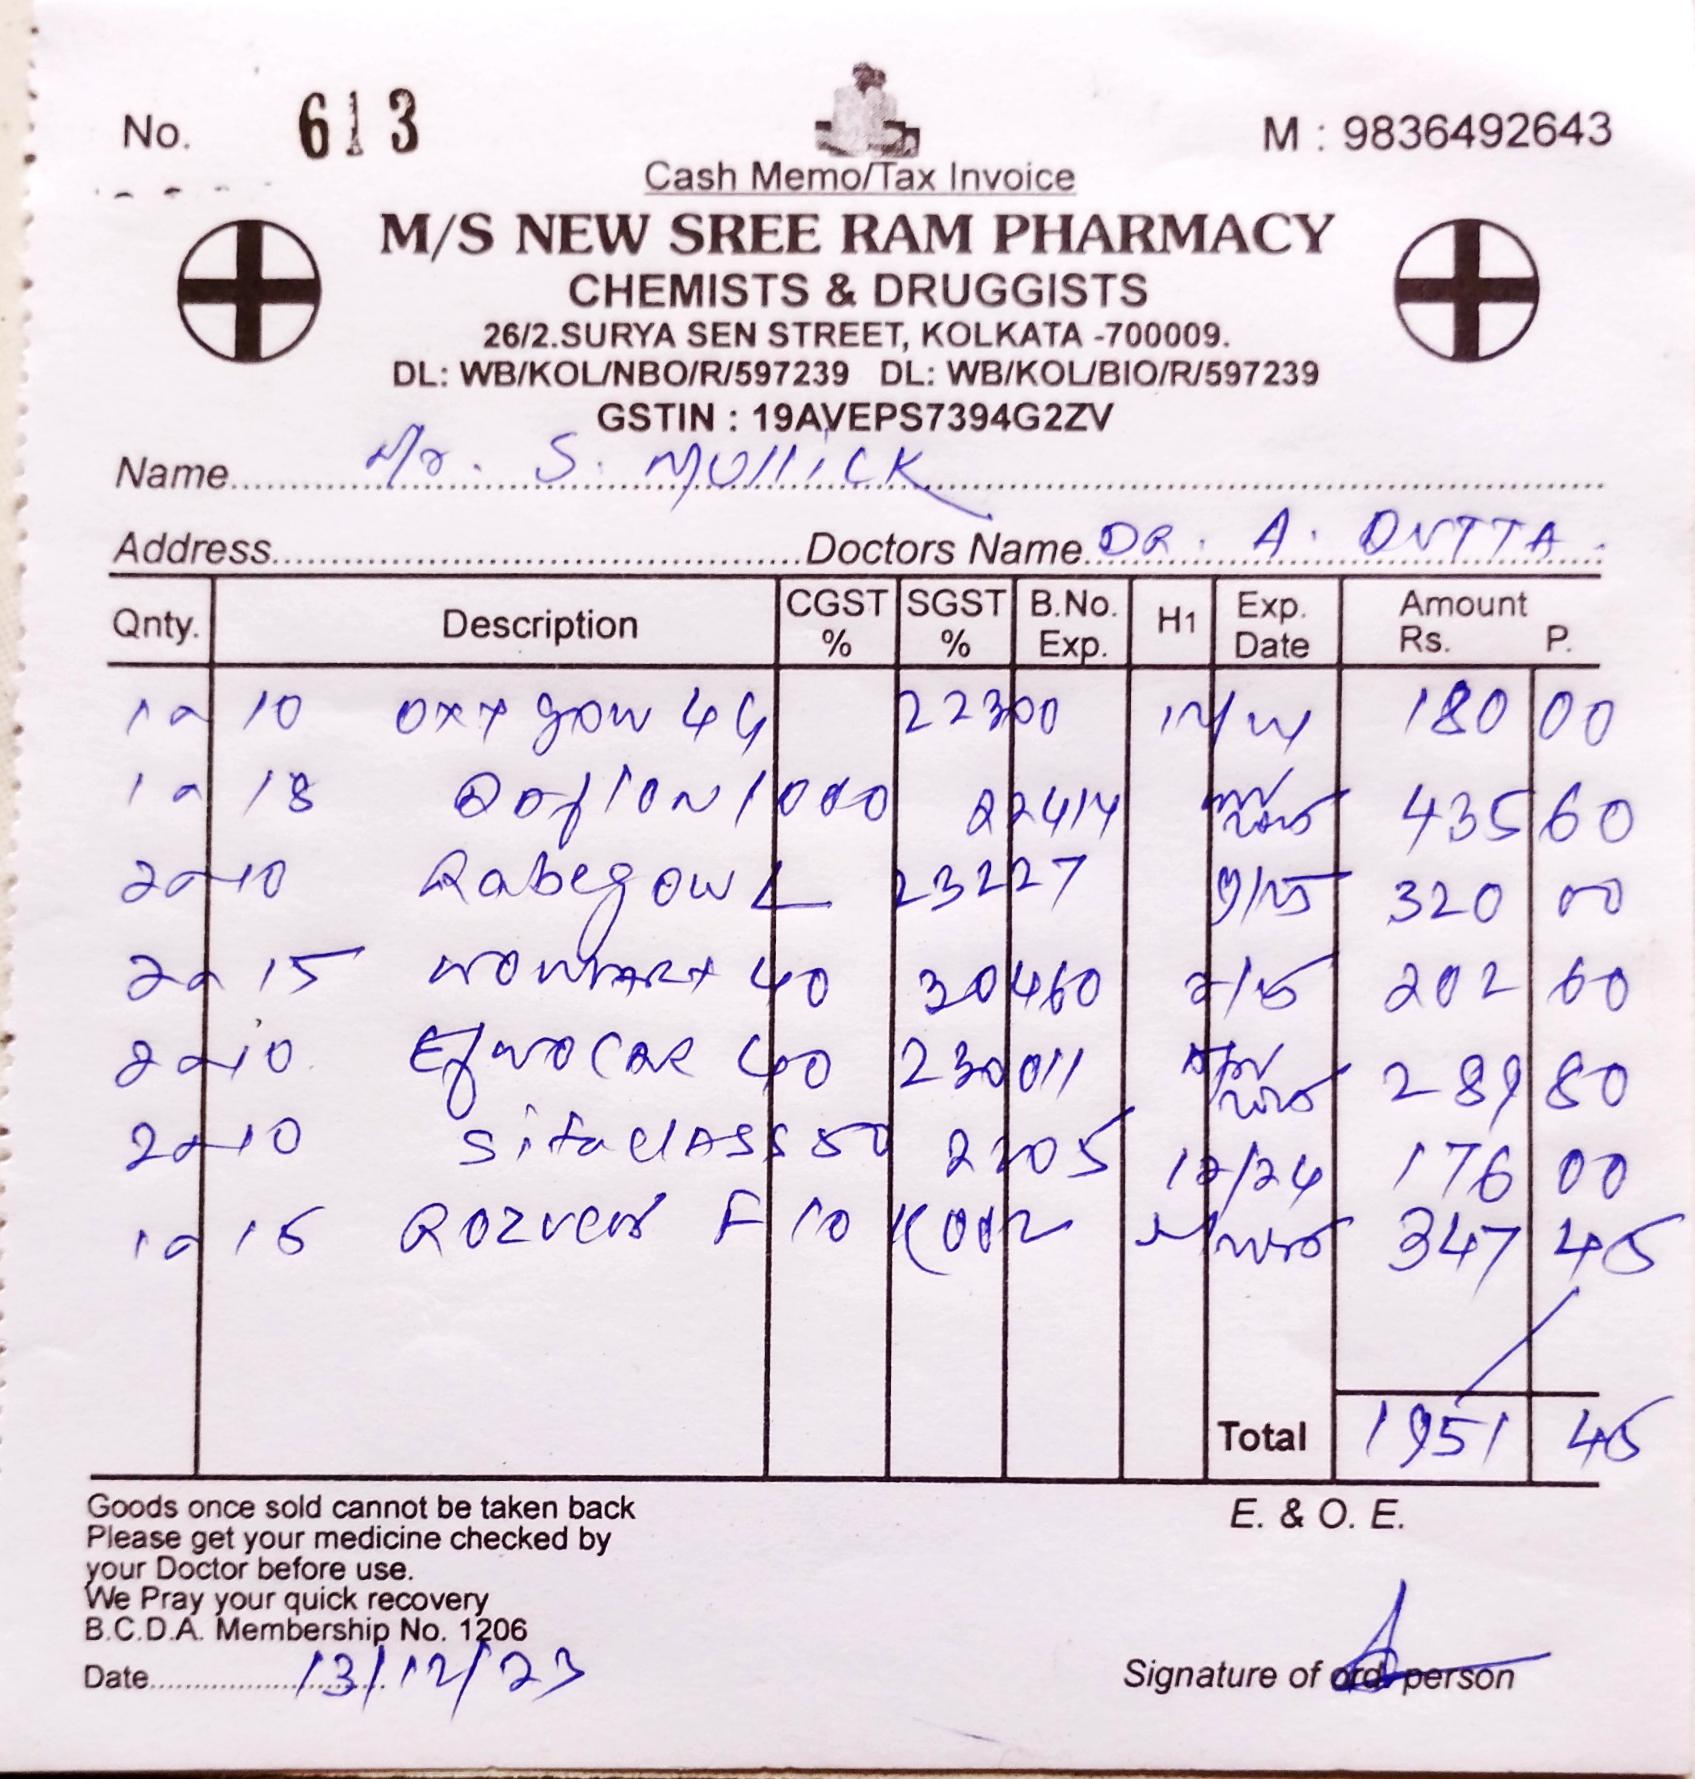 No. 613
M : 9836492643
Cash Memo/Tax Invoice
M/S NEW SREE RAM PHARMACY
CHEMISTS & DRUGGISTS
26/2.SURYA SEN STREET, KOLKATA -700009.
DL: WB/KOL/NBO/R/597239 DL: WB/KOL/BIO/R/597239
GSTIN : 19AVEPS7394G2ZV
Name Mr. S. Mullick
Address Doctors Name DR. A. DUTTA.
Qnty. Description CGST % SGST % B.No. Exp. H1 Exp. Date Amount Rs. P.
10 22300 180 00
18 1000 22414 435 60
10 Rabegow L 23227 9/25 320 00
15 40 30460 202 60
10 40 230011 289 80
10 sitaclASS 50 2205 12/24 176 00
15 F 10 K002 347 45
Total 1951 45
Goods once sold cannot be taken back
Please get your medicine checked by
your Doctor before use.
We Pray your quick recovery
B.C.D.A. Membership No. 1206
Date 13/12/23
E. & O. E.
Signature of ord. person